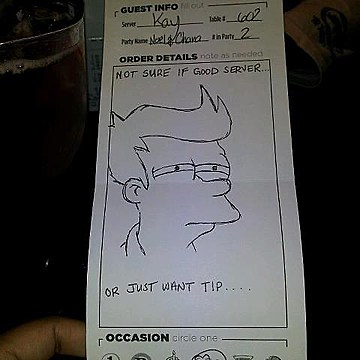 GUEST INFO fill out
Server Kay Table # 602
Party Name Noel & Chana # in Party 2
ORDER DETAILS note as needed
NOT SURE IF GOOD SERVER...
OR JUST WANT TIP....
OCCASION circle one